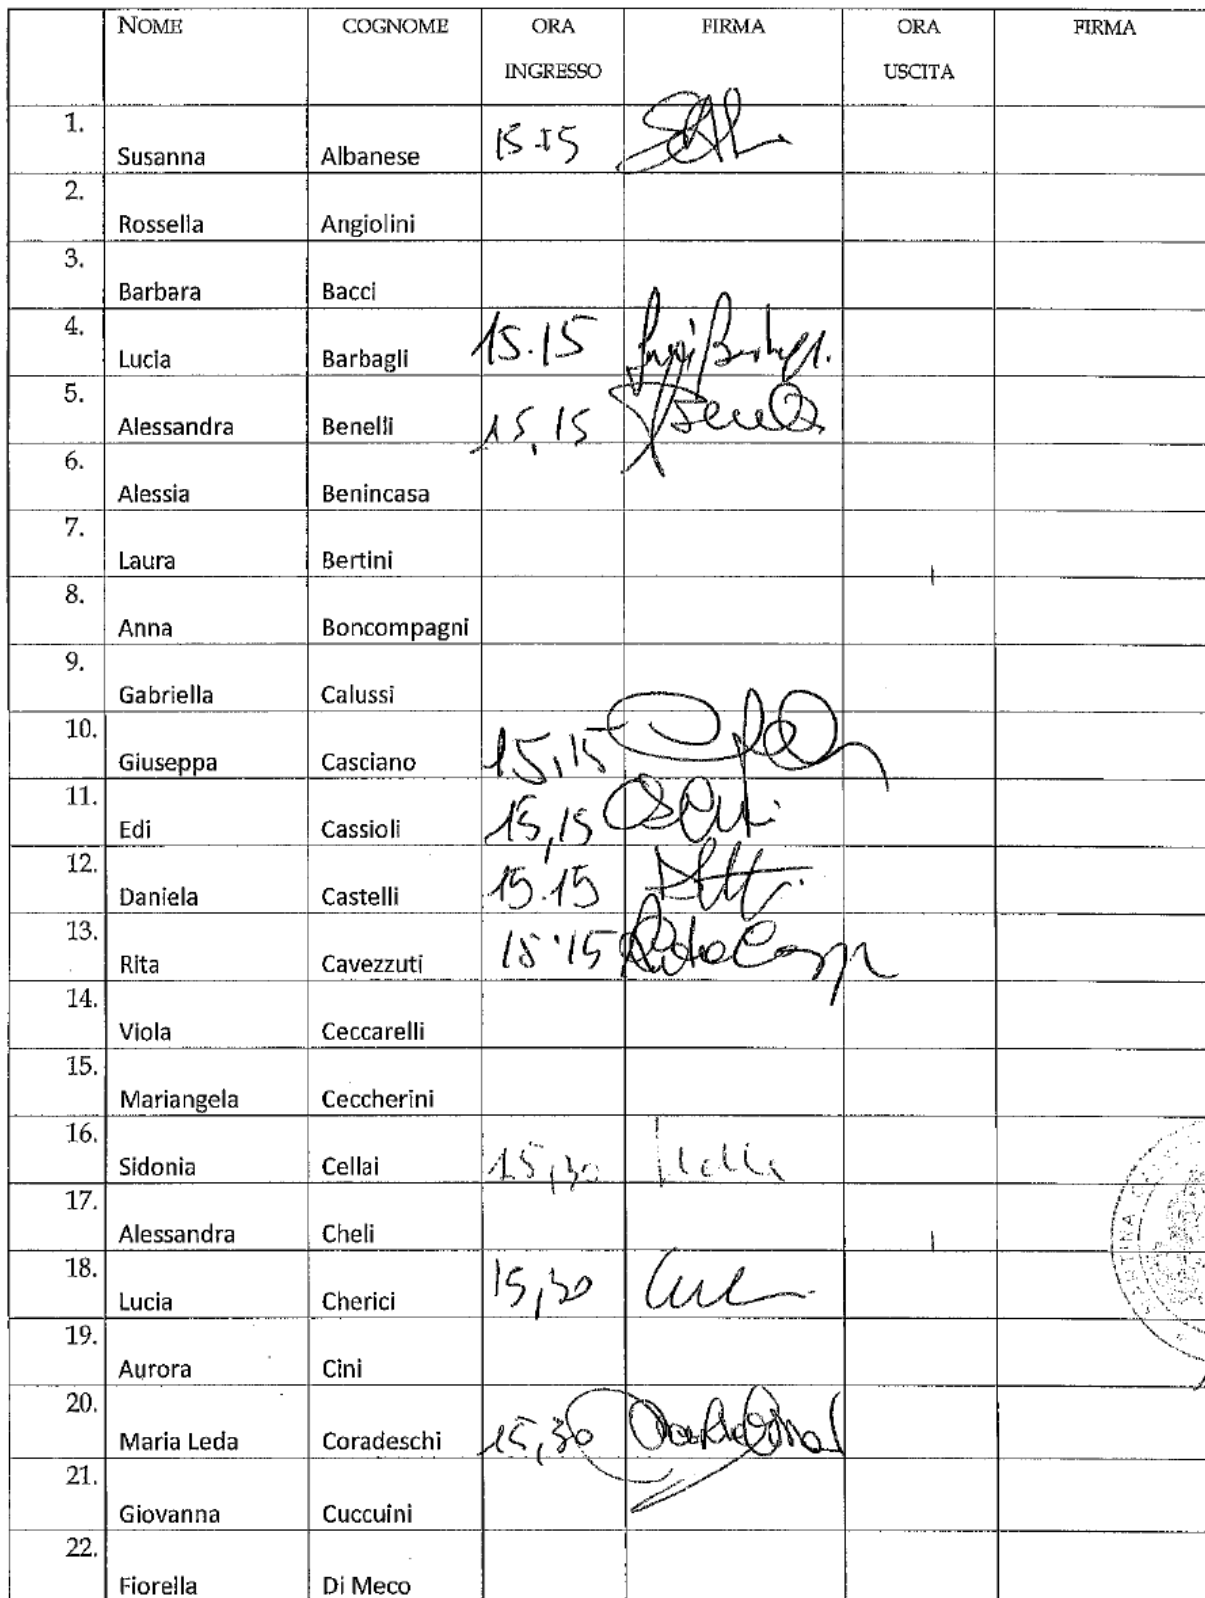 NOME COGNOME ORA INGRESSO FIRMA ORA USCITA FIRMA
1. Susanna Albanese 15.15
2. Rossella Angiolini
3. Barbara Bacci
4. Lucia Barbagli 15.15
5. Alessandra Benelli 15,15
6. Alessia Benincasa
7. Laura Bertini
8. Anna Boncompagni
9. Gabriella Calussi
10. Giuseppa Casciano 15,15
11. Edi Cassioli 15,15
12. Daniela Castelli 15.15
13. Rita Cavezzuti 15.15
14. Viola Ceccarelli
15. Mariangela Ceccherini
16. Sidonia Cellai 15,30
17. Alessandra Cheli
18. Lucia Cherici 15,30
19. Aurora Cini
20. Maria Leda Coradeschi 15,30
21. Giovanna Cuccuini
22. Fiorella Di Meco